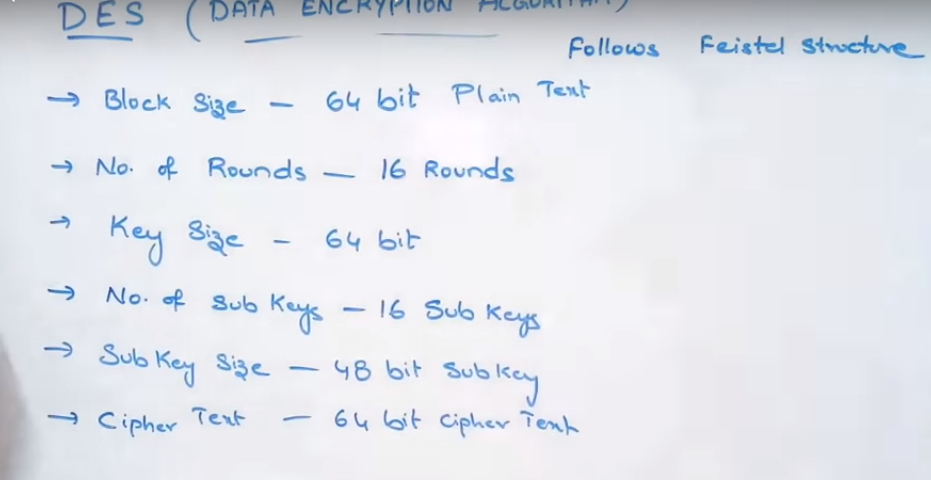 DES (DATA ENCRYPTION ALGORITHM)
Follows Feistel Structure
→ Block Size - 64 bit Plain Text
→ No. of Rounds - 16 Rounds
→ Key Size - 64 bit
→ No. of Sub Keys - 16 Sub Keys
→ Sub Key Size - 48 bit Sub key
→ Cipher Text - 64 bit Cipher Text